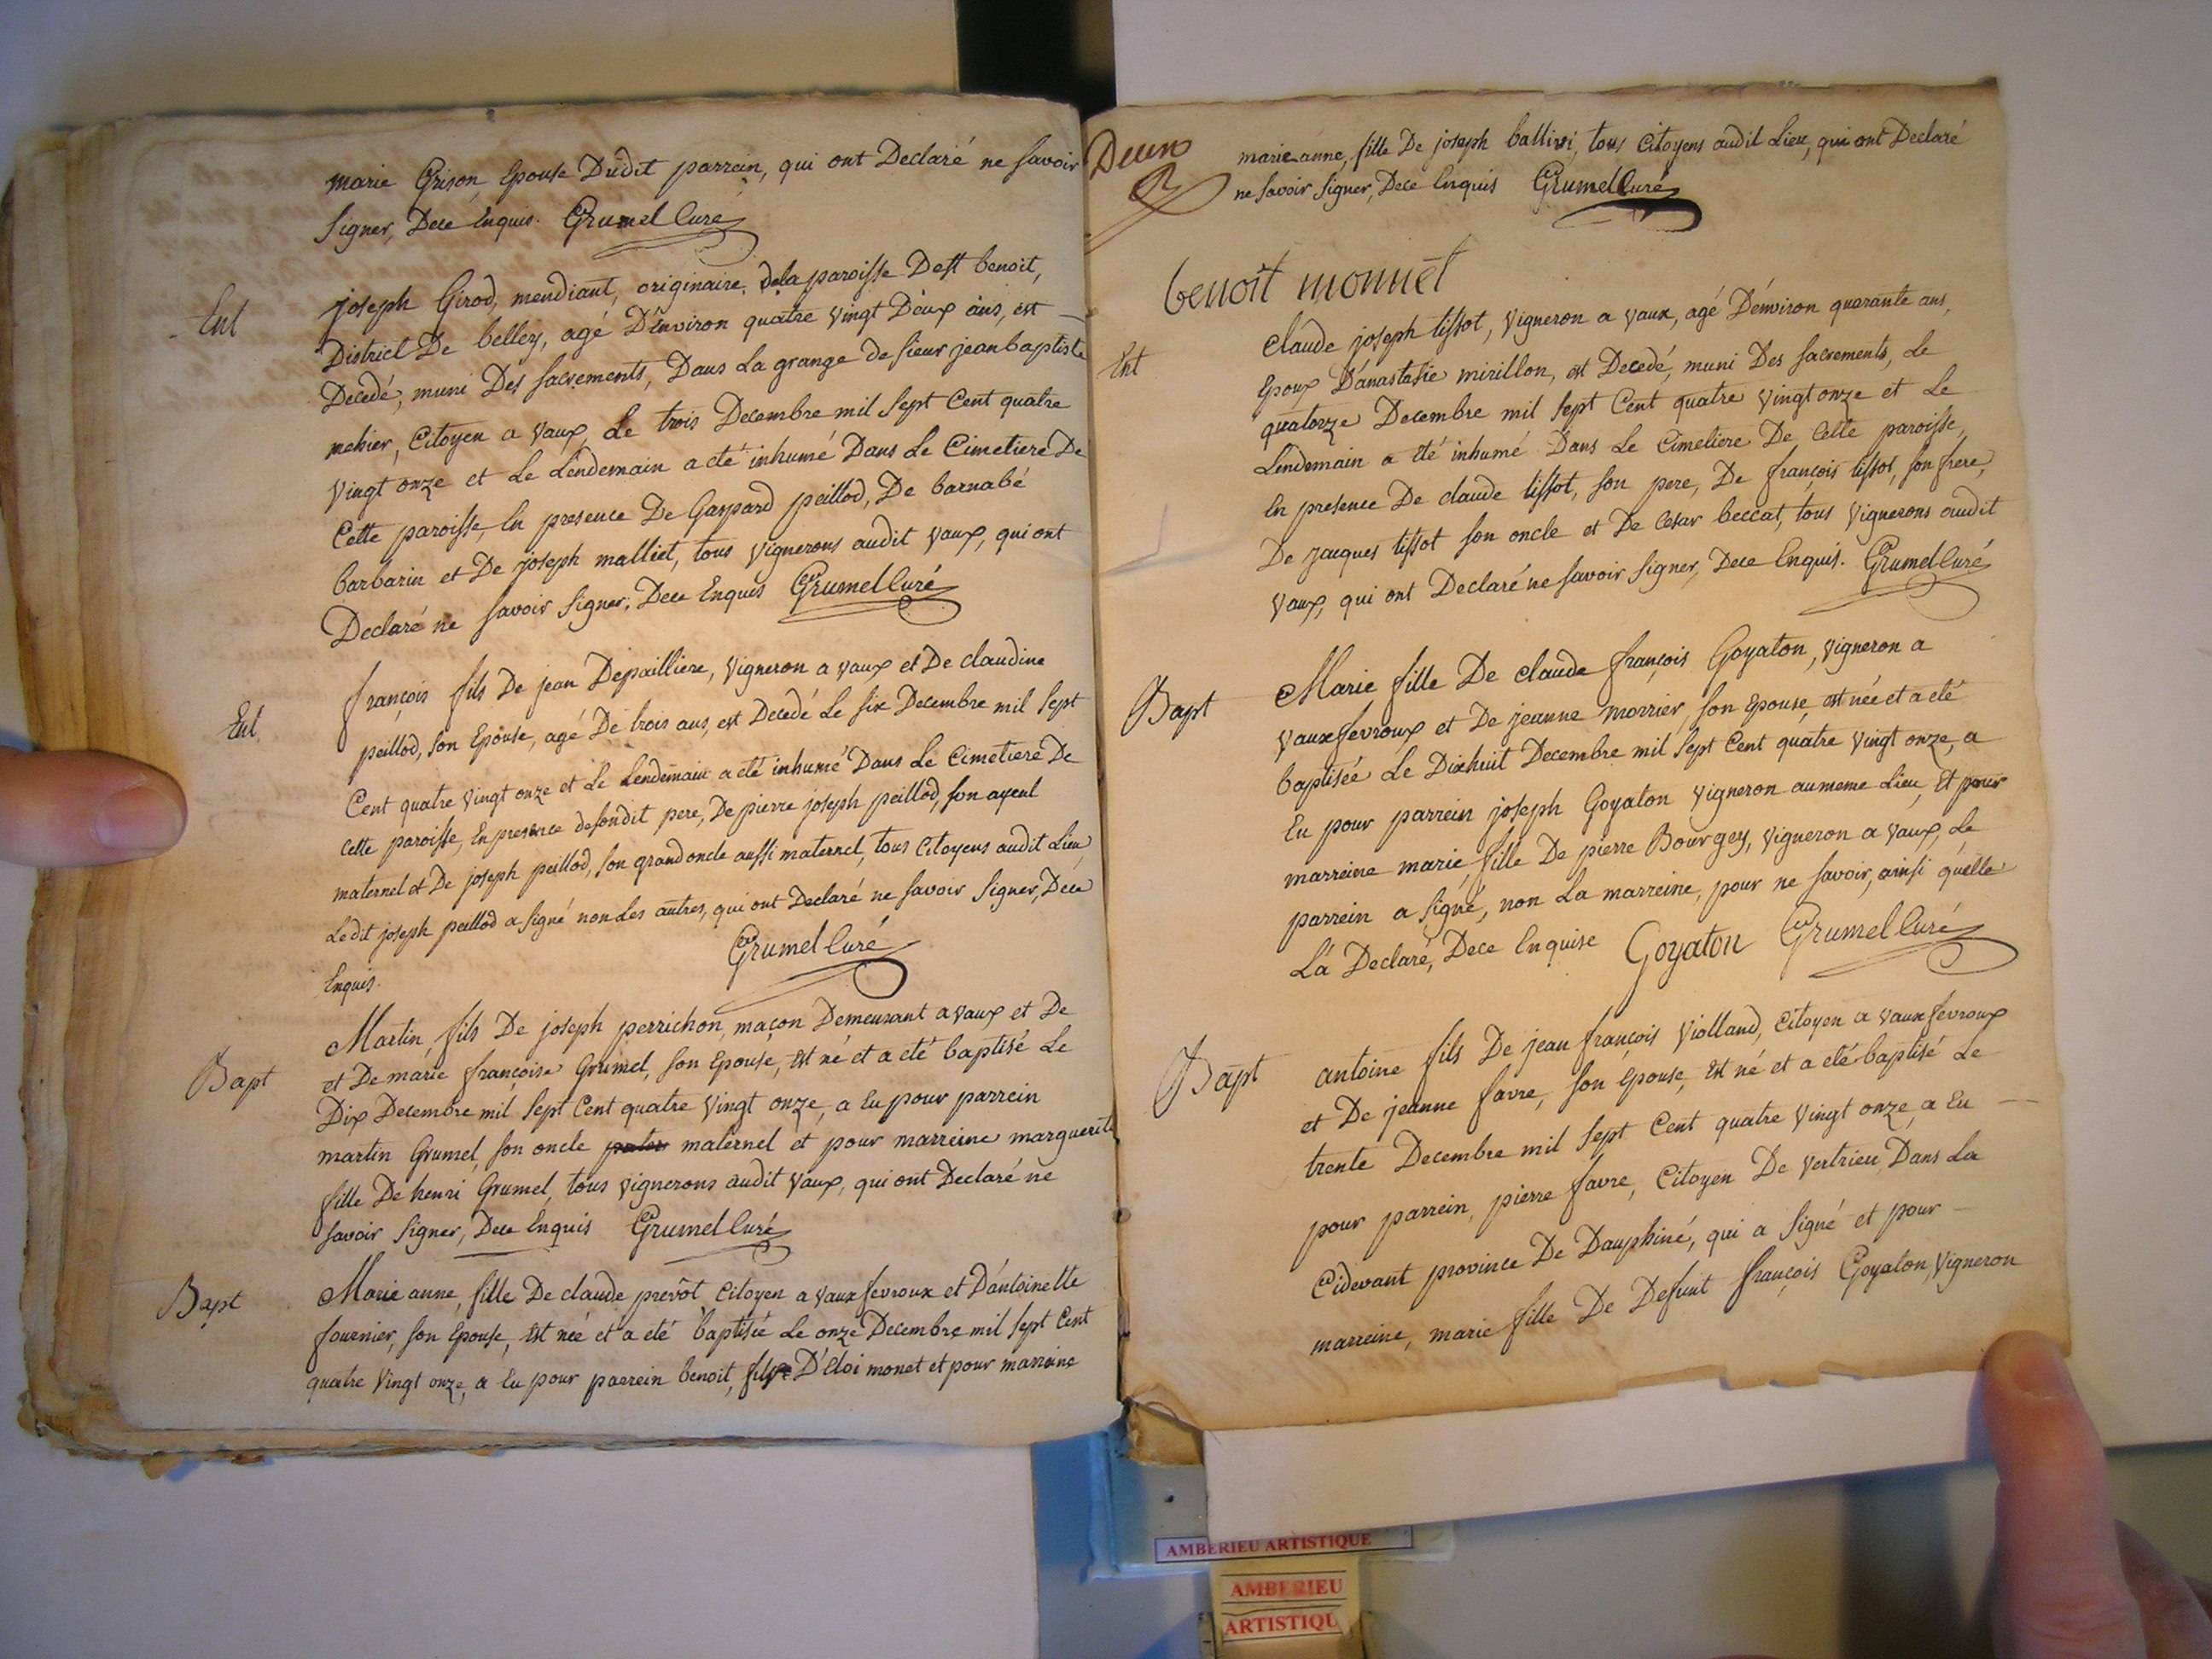 marie Grison, Epouse Dudit parrein, qui ont Declaré ne savoir
signer, Dece Enquis. Grumel Curé
Ent
joseph Girod, mendiant, originaire dela paroisse De st benoit,
District De belley, agé D'environ quatre vingt Deux ans, est
Decedé, muni Des sacrements, Dans La grange de sieur jean baptiste
mehier, Citoyen a Vaux, Le trois Decembre mil sept Cent quatre
vingt onze et Le Lendemain a eté inhumé Dans Le Cimetiere De
Cette paroisse, En presence De Gaspard peillod, De barnabé
barbarin et De joseph malliet, tous vignerons audit Vaux, qui ont
Declaré ne savoir signer, Dece Enquis Grumel Curé
Ent.
françois fils De jean Depailliere, Vigneron a Vaux et De claudine
peillod, son Epouse, agé De trois ans, est Decedé Le six Decembre mil sept
Cent quatre vingt onze et Le Lendemain a eté inhumé Dans Le Cimetiere De
cette paroisse, En presence desondit pere, De pierre joseph peillod, son ayeul
maternel et De joseph peillod, son grand oncle aussi maternel, tous Citoyens audit Lieu,
Ledit joseph peillod a signé non Les autres, qui ont Declaré ne savoir signer, Dece
Enquis. Grumel Curé
Bapt
Martin, fils De joseph perrichon, maçon Demeurant a Vaux et De
et De marie françoise Grumel, son Epouse, Est né et a eté baptisé Le
Dix Decembre mil sept Cent quatre vingt onze, a Eu pour parrein
martin Grumel, son oncle maternel et pour marreine marguerite
fille De henri Grumel, tous vignerons audit Vaux, qui ont Declaré ne
savoir signer, Dece Enquis Grumel Curé
Bapt
Marie anne, fille De claude prevôt Citoyen a Vaux fevroux et D'antoinette
fournier, son Epouse, Est née et a eté baptisée Le onze Decembre mil sept Cent
quatre vingt onze, a Eu pour parrein benoit, fils D'Eloi monet et pour marreine
Deux
marie anne, fille De joseph ballivi, tous Citoyens audit Lieu, qui ont Declaré
ne savoir signer, Dece Enquis Grumel Curé
benoît monnet
Ent
claude joseph tissot, Vigneron a Vaux, agé D'environ quarante ans,
Epoux D'anastasie mirillon, est Decedé, muni Des sacrements, Le
quatorze Decembre mil sept Cent quatre vingt onze et Le
Lendemain a eté inhumé Dans Le Cimetiere De Cette paroisse,
En presence De claude tissot, son pere, De françois tissot, son frere,
De jacques tissot son oncle et De Cesar beccat, tous Vignerons audit
Vaux, qui ont Declaré ne savoir signer, Dece Enquis. Grumel Curé
Bapt
Marie fille De claude françois Goyaton, Vigneron a
Vaux fevroux et De jeanne morrier, son Epouse, est née et a eté
baptisée Le Dixhuit Decembre mil sept Cent quatre vingt onze, a
Eu pour parrein joseph Goyaton vigneron au meme Lieu, Et pour
marreine marie, fille De pierre Bourgey, vigneron a Vaux, Le
parrein a signé, non La marreine, pour ne savoir, ainsi qu'elle
L'a Declaré, Dece Enquise Goyaton Grumel Curé
Bapt
antoine fils De jean françois Violland, Citoyen a Vaux fevroux
et De jeanne favre, son Epouse, Est né et a eté baptisé Le
trente Decembre mil sept Cent quatre vingt onze, a Eu
pour parrein, pierre favre, Citoyen De Vertrieu, Dans La
Cidevant province De Dauphiné, qui a signé et pour
marreine, marie fille De Defunt françois Goyaton, Vigneron
AMBERIEU ARTISTIQUE
AMBERIEU
ARTISTIQU